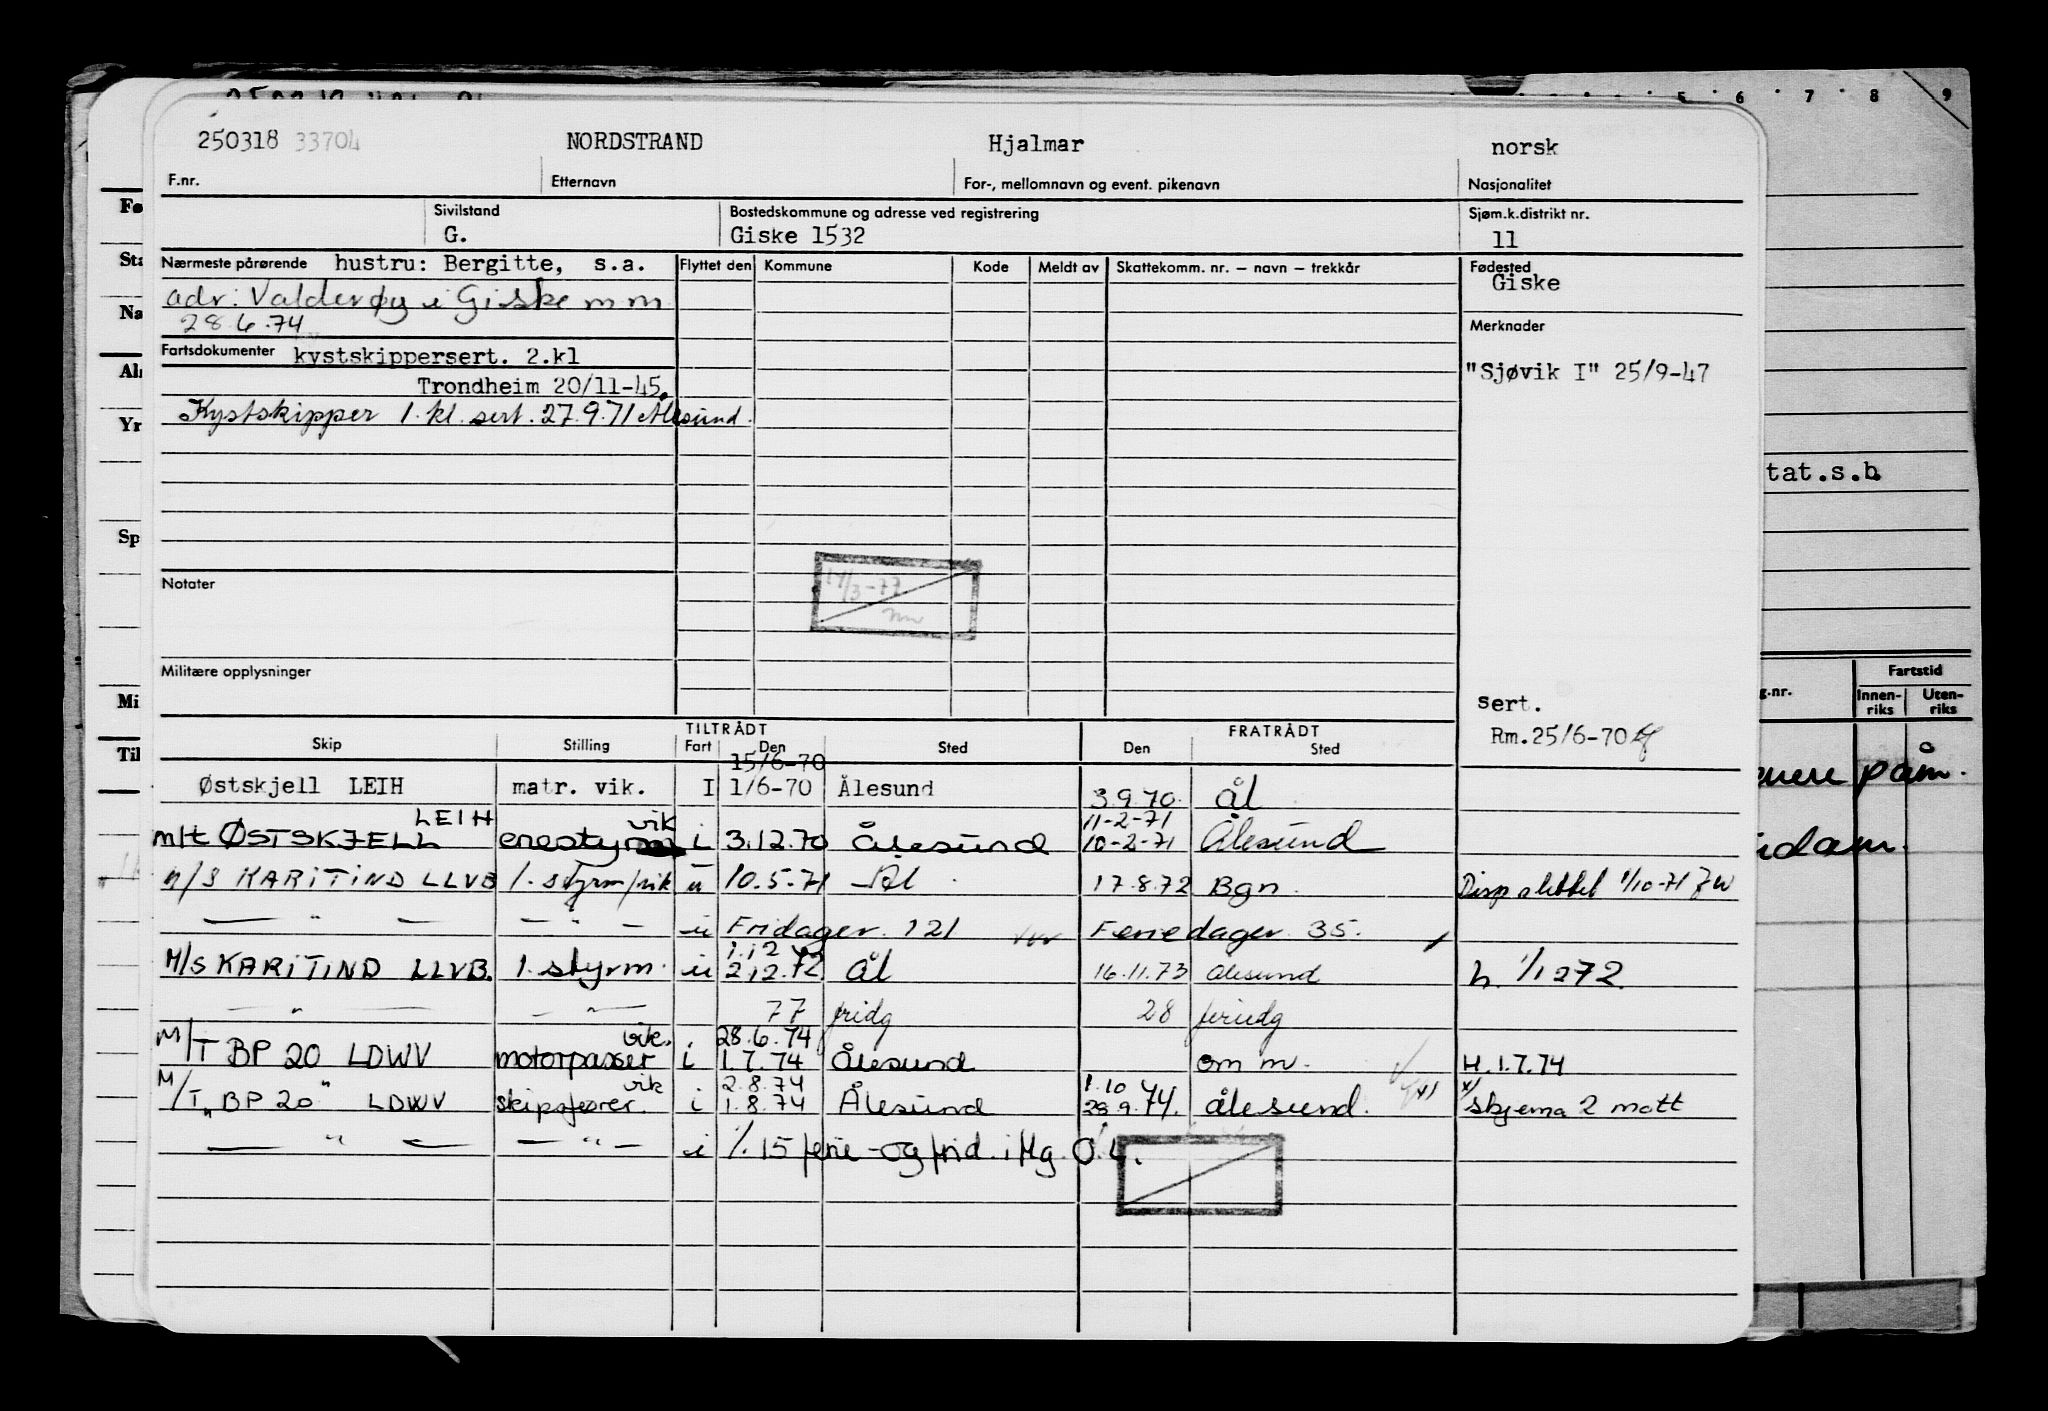 5 6 7 8 9
250318 33704 NORDSTRAND Hjalmar norsk
F.nr. Etternavn For-, mellomnavn og event. pikenavn Nasjonalitet
Sivilstand Bostedskommune og adresse ved registrering Sjøm.k.distrikt nr.
G. Giske 1532 11
Nærmeste pårørende hustru: Bergitte, s.a. Flyttet den Kommune Kode Meldt av Skattekomm. nr. – navn – trekkår Fødested
Giske
adr: Valderøy i Giske m m
28.6.74
Merknader
Fartsdokumenter kystskippersert. 2.kl
"Sjøvik I" 25/9-47
Trondheim 20/11-45.
Kystskipper 1. kl. sert. 27.9.71 Ålesund.
tat.s.b.
14/3-77
Notater
Militære opplysninger
sert.
Rm.25/6-70
g.nr. Fartstid
Innen-riks Uten-riks
TILTRÅDT FRATRÅDT
Skip Stilling Fart Den Sted Den Sted
15/6-70
Østskjell LEIH matr. vik. I 1/6-70 Ålesund 3.9.70. Ål
LEIH vik 11-2-71
m/t ØSTSKJELL enestyrm i 3.12.70 Ålesund 10-2-71 Ålesund
M/S KARITIND LLVB 1. styrm/vik u 10.5.71 Ål 17.8.72 Bgn. Disp slettet 1/10-71
— " — — " — u Fridager 121 Feriedager 35.
1.12 72
M/S KARITIND LLVB. 1. styrm. u 2.12.72 Ål 16.11.73 Ålesund h. 1/12 72.
— " — — " — 77 fridg 28 feriedg
vik. 28.6.74
M/T BP 20 LDWV motorpasser i 1.7.74 Ålesund om m. H.1.7.74
vik 2.8.74 1.10
M/T "BP 20" LDWV skipsfører. i 1.8.74 Ålesund 28.9.74. Ålesund. x/ skjema 2 mott
— " — — " — i %. 15 ferie-og frid. i flg. O.L.